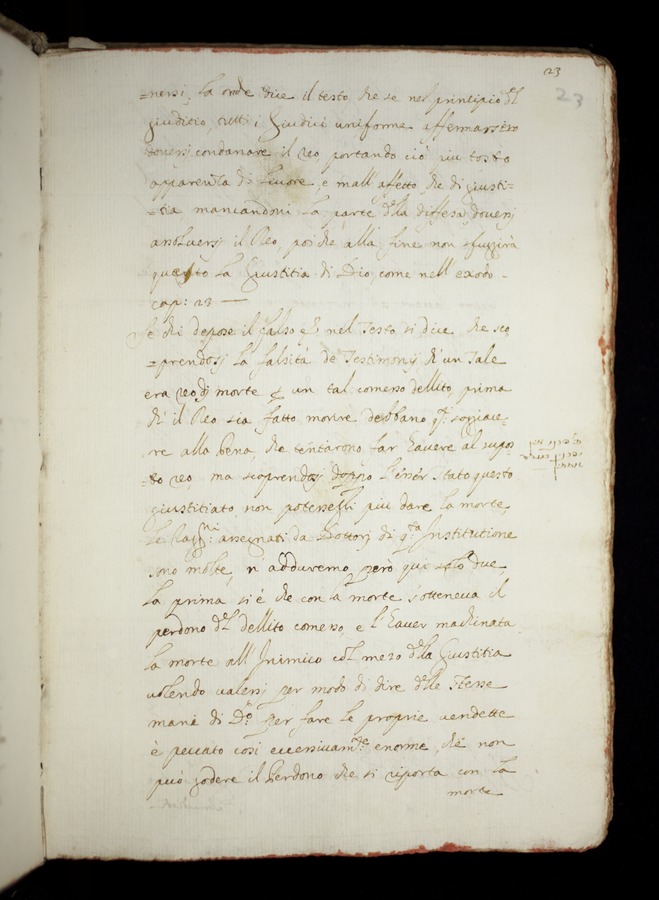 23
23
=nersi, la onde dice il testo, che se nel principio d'l
giuditio, tutti i Giudici uniforme affermassero
doversi condanare il reo, portando ciò più tosto
apparenza di livore, e mall'affetto che di giusti=
=tia mancandoni la parte d'lla diffesa, doversi
assoluersi il Reo, poi che alla fine non sfuggirà
questo la Giustitia di Dio, come nell'exodo
cap: 23
Se chi depose il falso & nel Testo si dice, che sco
=prendosi la falsità de Testimonij ch'un Tale
era reo di morte & un tal comesso dellito, prima
ch'il Reo sia fatto morire debbano q.ti sogiace=
re alla Pena, che tentarono far havere al supos
=to reo, ma scoprendosi doppo l'esser stato questo
giustitiato non potersegli più dare la morte
le Raggni: assegnati da Dottori di q.ta Institutione
sono molte, n'adduremo però qui solo due,
la prima si è che con la morte s'otteneva il
perdono d'l dellito comesso, e l'haver machinata
la morte all'Inimico col mezo d'lla Giustitia
volendo valersi per modo di dire d'lle stesse
mane di D.o per fare le proprie vendette
è peccato così eccessivam.te enorme, che non
può godere il Perdono che si riporta con la
morte